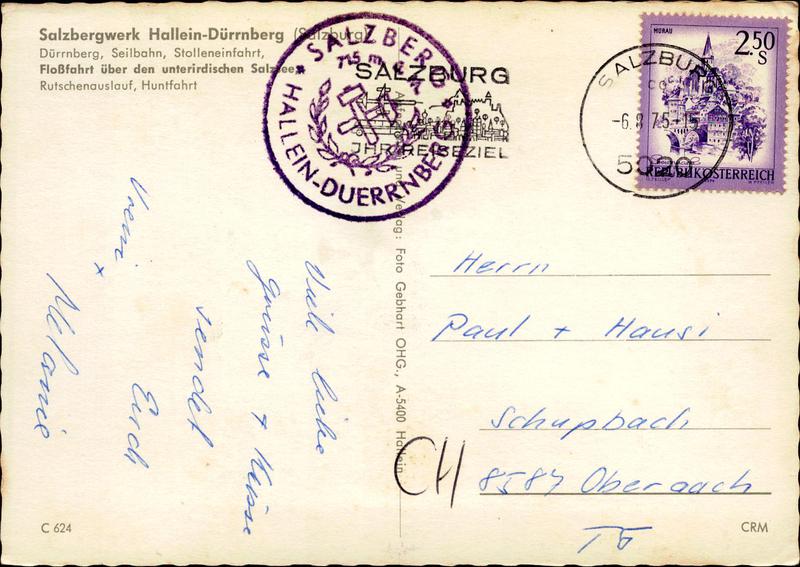 Salzbergwerk Hallein-Dürrnberg (Salzburg)
Dürrnberg, Seilbahn, Stolleneinfahrt,
Floßfahrt über den unterirdischen Salzsee,
Rutschenauslauf, Huntfahrt
SALZBERG
HALLEIN-DUERRNBERG
SALZBURG
IHR REISEZIEL
SALZBURG
-6.8.75-15
5020
MURAU
2.50
S
REPUBLIK ÖSTERREICH
Viele liebe
Grüsse + Küsse
sendet
Euch
Vreni
+
Melanie
Verlag: Foto Gebhart OHG., A-5400 Hallein
Herrn
Paul + Hansi
Schupbach
CH
8587 Oberaach
TG
C 624
CRM